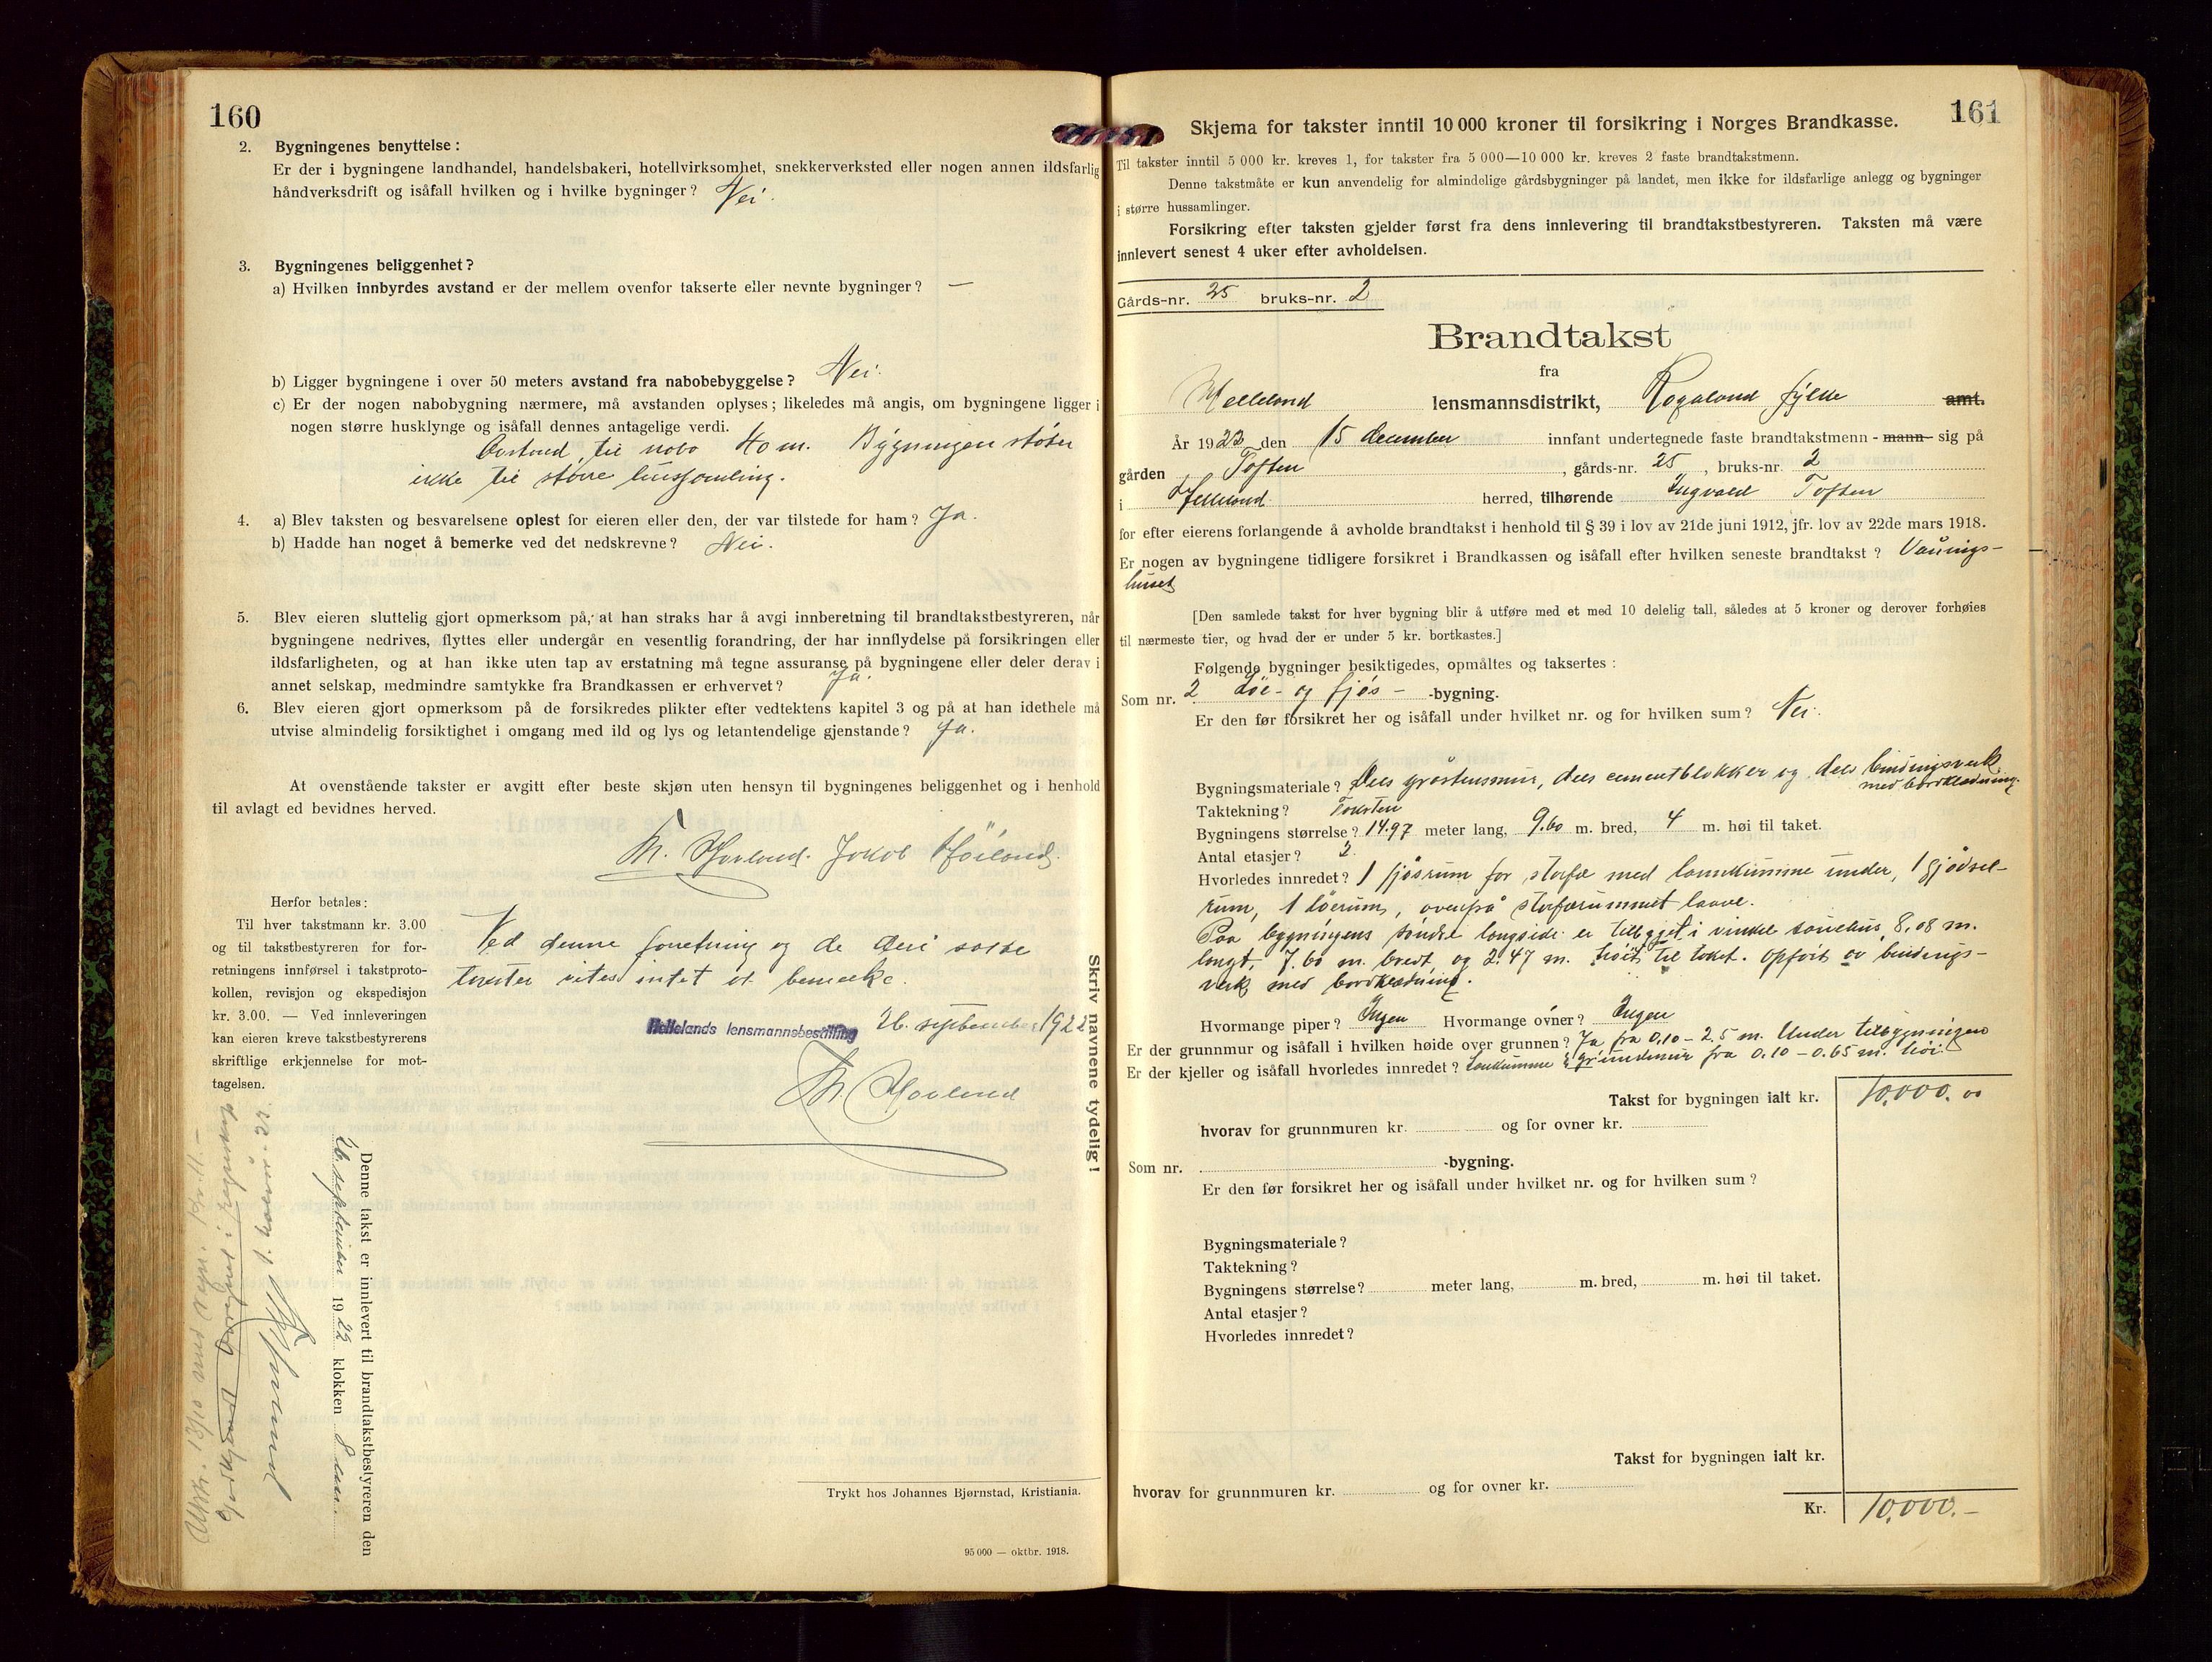 160
2. Bygningenes benyttelse:
Er der i bygningene landhandel, handelsbakeri, hotellvirksomhet, snekkerverksted eller nogen annen ildsfarlig
håndverksdrift og isåfall hvilken og i hvilke bygninger? Nei.
3. Bygningenes beliggenhet?
a) Hvilken innbyrdes avstand er der mellem ovenfor takserte eller nevnte bygninger? —
b) Ligger bygningene i over 50 meters avstand fra nabobebyggelse? Nei.
c) Er der nogen nabobygning nærmere, må avstanden oplyses; likeledes må angis, om bygningene ligger i
nogen større husklynge og isåfall dennes antagelige verdi.
Avstand til nabo 40 m. Bygningen støter
ikke til større hussamling.
4. a) Blev taksten og besvarelsene oplest for eieren eller den, der var tilstede for ham? Ja.
b) Hadde han noget å bemerke ved det nedskrevne? Nei.
5. Blev eieren sluttelig gjort opmerksom på, at han straks har å avgi innberetning til brandtakstbestyreren, når
bygningene nedrives, flyttes eller undergår en vesentlig forandring, der har innflydelse på forsikringen eller
ildsfarligheten, og at han ikke uten tap av erstatning må tegne assuranse på bygningene eller deler derav i
annet selskap, medmindre samtykke fra Brandkassen er erhvervet? Ja.
6. Blev eieren gjort opmerksom på de forsikredes plikter efter vedtektens kapitel 3 og på at han idethele må
utvise almindelig forsiktighet i omgang med ild og lys og letantendelige gjenstande? Ja.
At ovenstående takster er avgitt efter beste skjøn uten hensyn til bygningenes beliggenhet og i henhold
til avlagt ed bevidnes herved.
Th. Hovland. Jakob Høiland.
Herfor betales:
Til hver takstmann kr. 3.00
og til takstbestyreren for for-
retningens innførsel i takstproto-
kollen, revisjon og ekspedisjon
kr. 3.00. — Ved innleveringen
kan eieren kreve takstbestyrerens
skriftlige erkjennelse for mot-
tagelsen.
Ved denne forretning og de deri satte
takster vites intet at bemerke.
Hellelands lensmannsbestilling 26. september 1922
Th. Hovland
Skriv navnene tydelig!
Denne takst er innlevert til brandtakstbestyreren den
26. september 1922 klokken 8
Utskr. 13/10 med regn. Kr. 11.—
Trykt hos Johannes Bjørnstad, Kristiania.
95 000 — oktbr. 1918.
161
Skjema for takster inntil 10 000 kroner til forsikring i Norges Brandkasse.
Til takster inntil 5 000 kr. kreves 1, for takster fra 5 000—10 000 kr. kreves 2 faste brandtakstmenn.
Denne takstmåte er kun anvendelig for almindelige gårdsbygninger på landet, men ikke for ildsfarlige anlegg og bygninger
i større hussamlinger.
Forsikring efter taksten gjelder først fra dens innlevering til brandtakstbestyreren. Taksten må være
innlevert senest 4 uker efter avholdelsen.
Gårds-nr. 25 bruks-nr. 2
Brandtakst
fra
Helleland lensmannsdistrikt, Rogaland fylke amt.
År 1922 den 15 december innfant undertegnede faste brandtakstmenn - mann - sig på
gården Toften, gårds-nr. 25, bruks-nr. 2
i Helleland herred, tilhørende Ingvald Toften
for efter eierens forlangende å avholde brandtakst i henhold til § 39 i lov av 21de juni 1912, jfr. lov av 22de mars 1918.
Er nogen av bygningene tidligere forsikret i Brandkassen og isåfall efter hvilken seneste brandtakst? Vånings-
huset
[Den samlede takst for hver bygning blir å utføre med et med 10 delelig tall, således at 5 kroner og derover forhøies
til nærmeste tier, og hvad der er under 5 kr. bortkastes.]
Følgende bygninger besiktigedes, opmåltes og taksertes:
Som nr. 2 Løe- og fjøs- -bygning.
Er den før forsikret her og isåfall under hvilket nr. og for hvilken sum? Nei.
Bygningsmateriale? Dels gråstensmur, dels cementblokker og dels bindingsverk
med bordklædning.
Taktekning? Taksten
Bygningens størrelse? 14.97 meter lang, 9.60 m. bred, 4 m. høi til taket.
Antal etasjer? 2
Hvorledes innredet? 1 fjøsrum for storfæ med lannkumme under, 1 gjødsel-
rum, 1 løerum, ovenpå storfærummet laave.
Paa bygningens søndre langside er tilbygget i vinkel sauehus 8,08 m.
langt, 7.60 m. bredt og 2.47 m. høit til taket. Opført av bindings-
verk med bordklædning.
Hvormange piper? Ingen Hvormange ovner? Ingen
Er der grunnmur og isåfall i hvilken høide over grunnen? Ja fra 0,10 - 2.5 m. Under tilbygningen
Er der kjeller og isåfall hvorledes innredet? Lankumme grundmur fra 0.10 - 0.65 m. høi.
Takst for bygningen ialt kr. 10.000.00
hvorav for grunnmuren kr. og for ovner kr.
Som nr. -bygning.
Er den før forsikret her og isåfall under hvilket nr. og for hvilken sum?
Bygningsmateriale?
Taktekning?
Bygningens størrelse? meter lang, m. bred, m. høi til taket.
Antal etasjer?
Hvorledes innredet?
Takst for bygningen ialt kr.
hvorav for grunnmuren kr. og for ovner kr.
Kr. 10.000.-